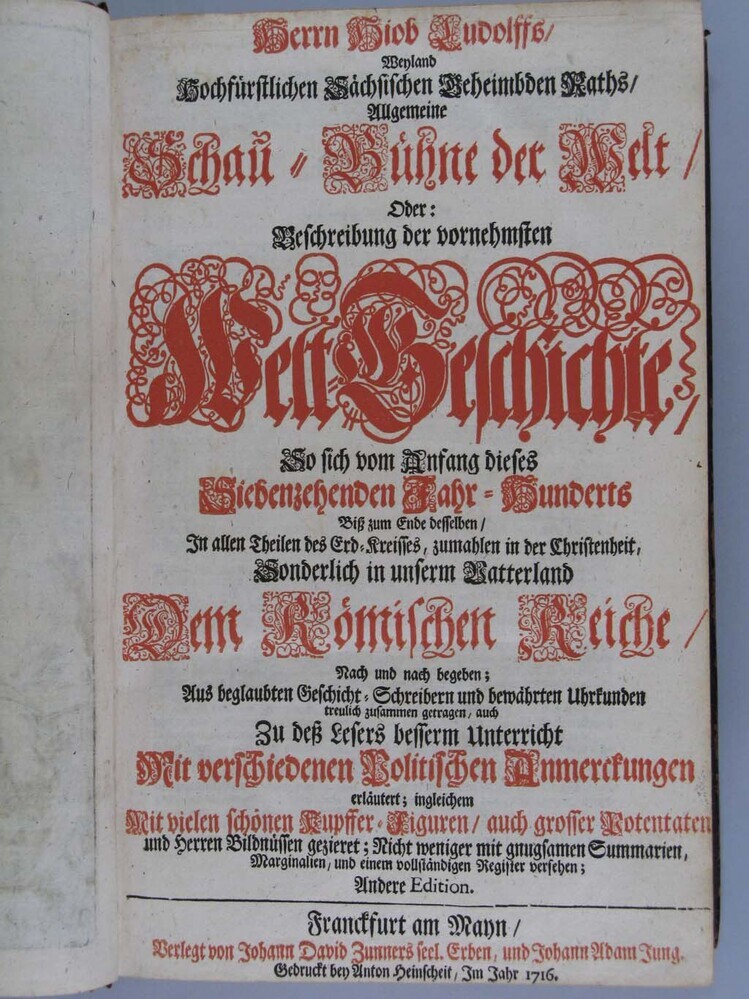 Herrn Hiob Ludolffs/
Weyland
Hochfürstlichen Sächsischen Geheimbden Raths/
Allgemeine
Schau-Bühne der Welt/
Oder:
Beschreibung der vornehmsten
Welt-Geschichte/
So sich vom Anfang dieses
Siebenzehenden Jahr-Hunderts
Biß zum Ende desselben/
In allen Theilen des Erd-Kreisses, zumahlen in der Christenheit,
Sonderlich in unserm Vatterland
Dem Römischen Reiche/
Nach und nach begeben;
Aus beglaubten Geschicht-Schreibern und bewährten Uhrkunden
treulich zusammen getragen/ auch
Zu deß Lesers besserm Unterricht
Mit verschiedenen Politischen Anmerckungen
erläutert; ingleichem
Mit vielen schönen Kupffer-Figuren/ auch grosser Potentaten
und Herren Bildnüssen gezieret; Nicht weniger mit gnugsamen Summarien,
Marginalien/ und einem vollständigen Register versehen;
Andere Edition.
Franckfurt am Mayn/
Verlegt von Johann David Zunners seel. Erben, und Johann Adam Jung.
Gedruckt bey Anton Heinscheit/ Im Jahr 1716.